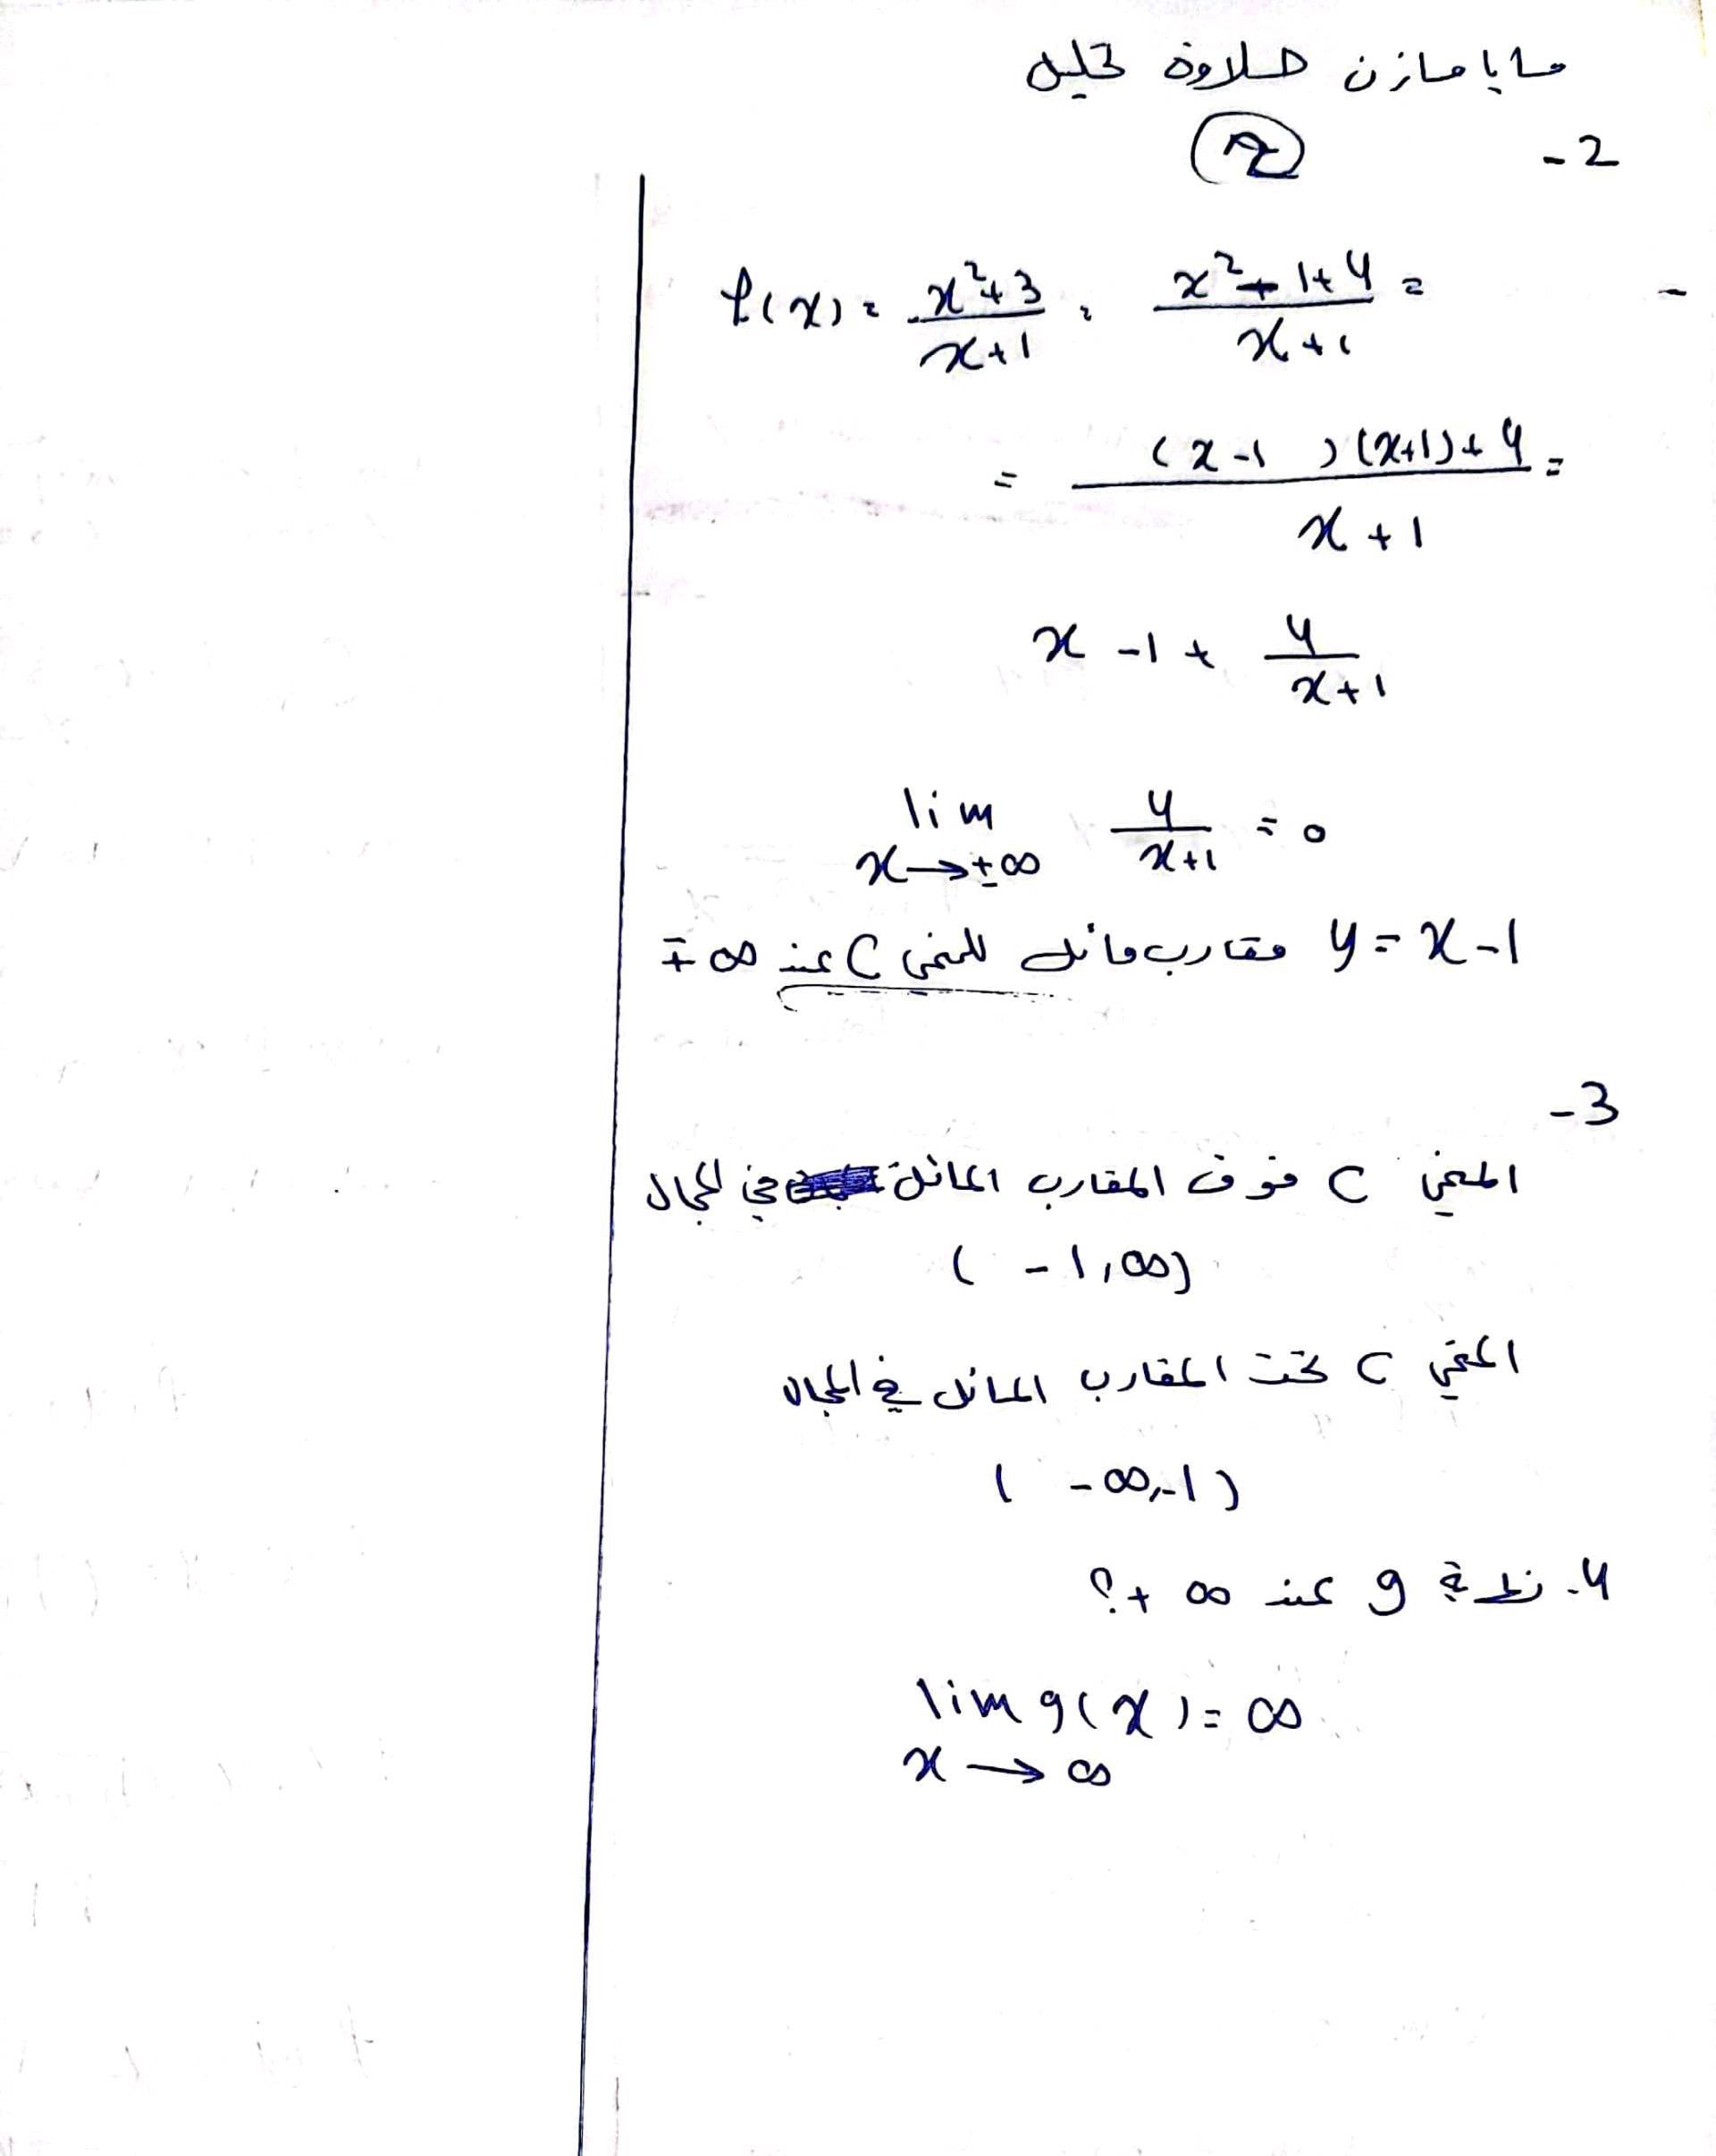 مايا مازن حلاوة تحليل
2 -
2
f(x) = x²+3 / x+1 = x²+1+4 / x+1 =
= (x-1)(x+1)+4 / x+1 =
x -1 + 4 / x+1
lim x→±∞ 4 / x+1 = 0
y = x-1 مقارب مائل للمنحني C عند ∓∞
3 -
المنحني C فوق المقارب المائل في المجال
(-1,∞)
المنحني C تحت المقارب المائل في المجال
(-∞,-1)
4- نهاية g عند +∞ ؟
lim g(x) = ∞
x → ∞